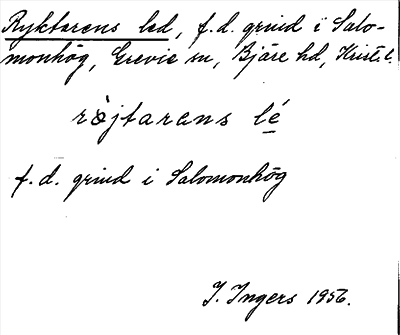 Ryktarens led, f.d. grind i Salo-
monhög, Grevie sn, Bjäre hd, Krist. l.
röjtarens lé
f.d. grind i Salomonhög
I. Ingers 1956.